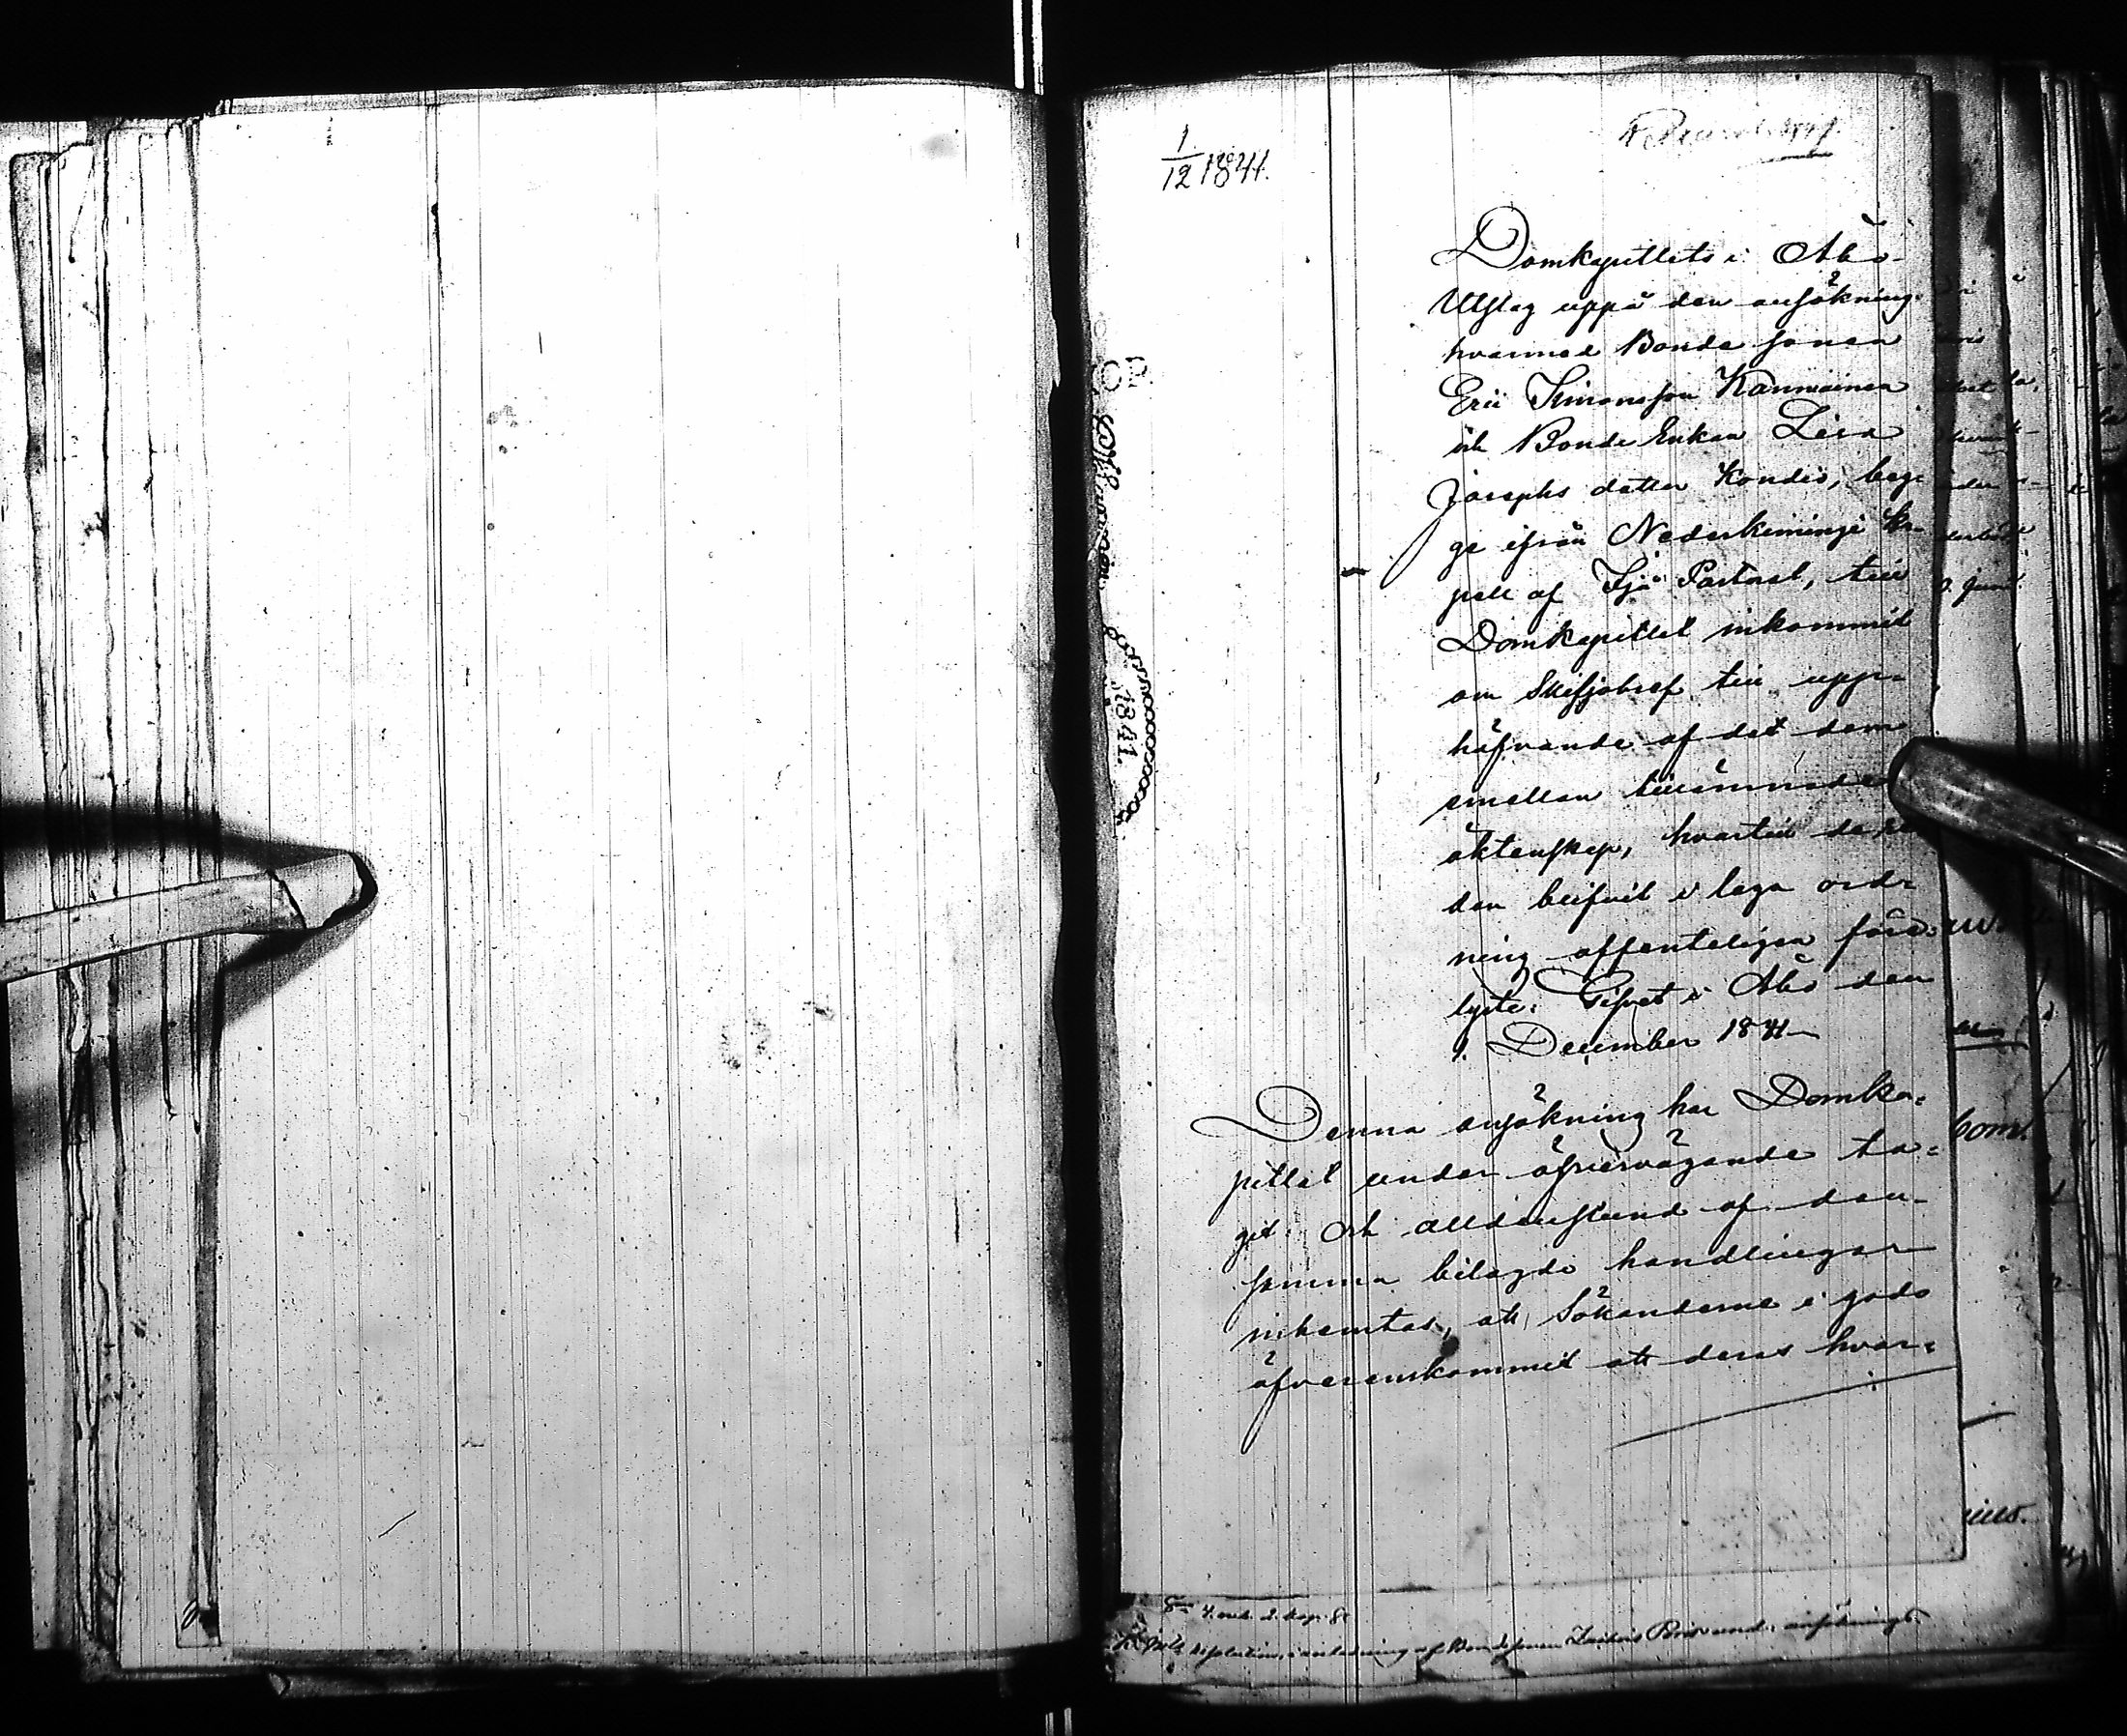 1/12 1841.
Domkapitlets i Åbo
Utslag uppå den ansökning
hvarmed Bonde sonen
Eric Simonsson Kanniainen
och Bonde Enkan Lisa
Josephs dotter Kondio, beg-
ge ifrån Nederkiminge Ka-
pell af Ijo Pastorat, till
Domkapitlet inkommit
om Skiljobref till upp-
häfvande af det dem
emellan tillämnade
äktenskap, hvartill de re
dan blifvit i laga ord-
ning offenteligen före-
lyste. Gifvet i Åbo den
1. December 1841
Denna ansökning har Domka-
pitlet under öfvervägande ta-
git. Och alldenstund af den-
samma bilagde handlingar
inhemtas, att Sökanderne i godo
öfverenskommit att deras hvar-
resolution, i anledning af Bondesonen ansöknings